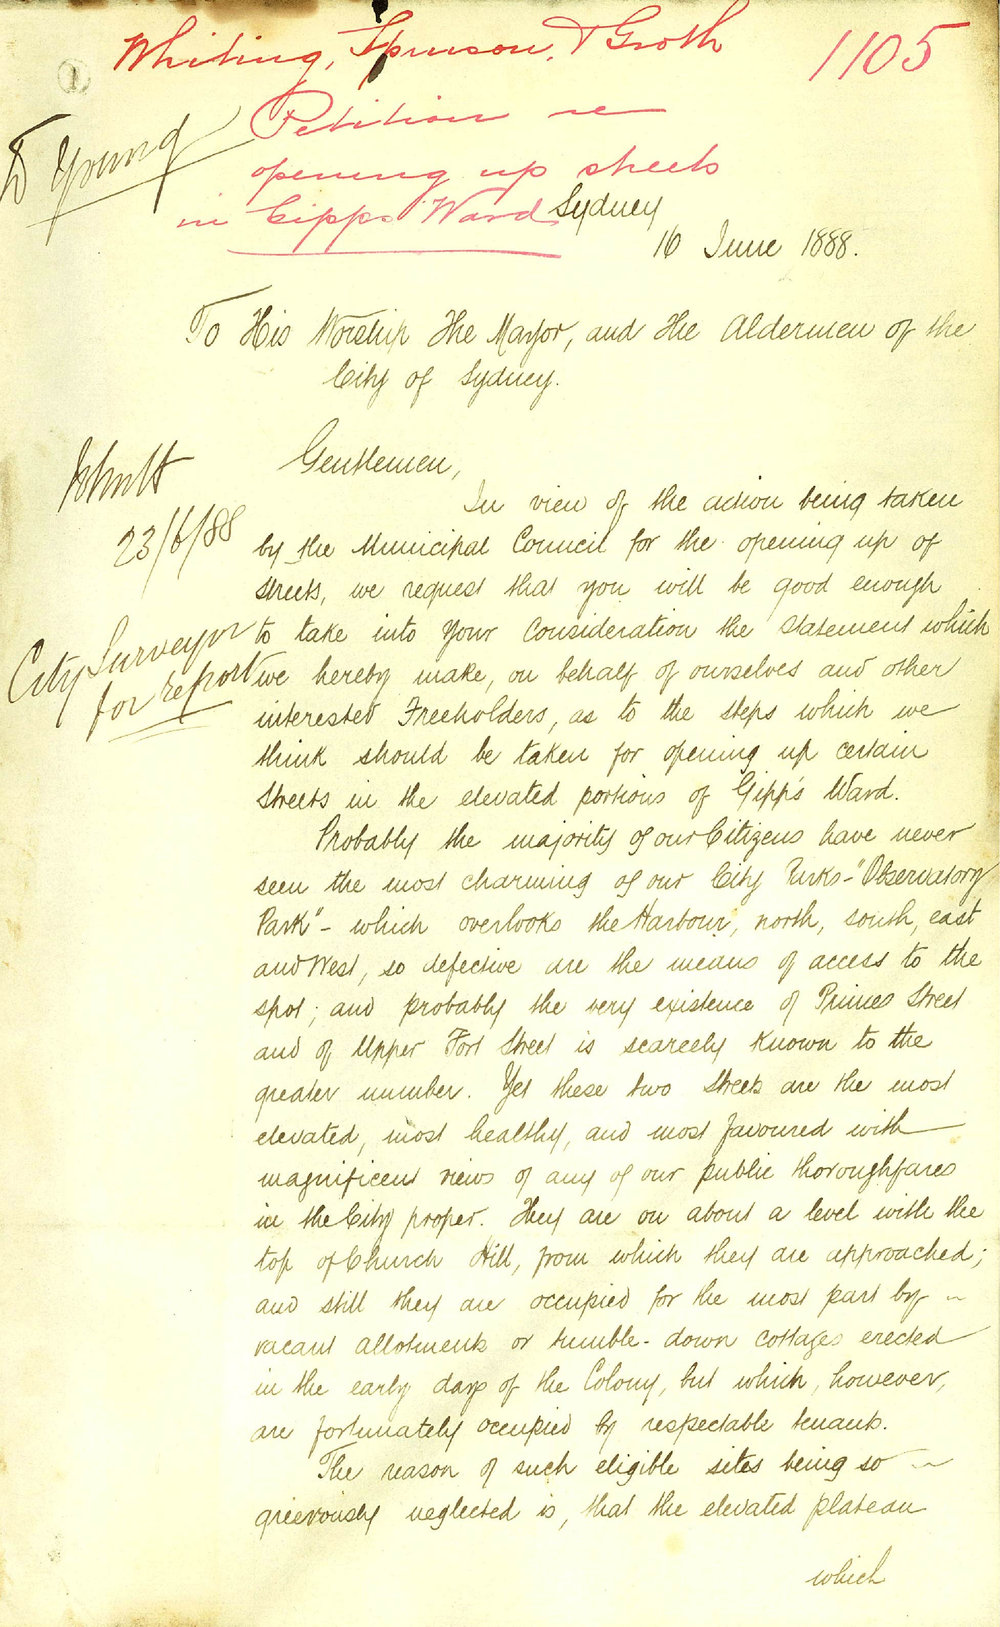 Whiting, Spruson, & Groth
1105
Petition re
Young
opening up streets
in Gipps Ward
Sydney
16 June 1888.
To His Worship The Mayor, and the Aldermen of the
City of Sydney.
Gentlemen,
In view of the action being taken
23/6/88
by the Municipal Council for the opening up of
Streets, we request that you will be good enough
City Surveyor
for report
to take into your Consideration the statement which
we hereby make, on behalf of ourselves and other
interested Freeholders, as to the steps which we
think should be taken for opening up certain
Streets in the elevated portions of Gipp's Ward.
Probably the majority of our Citizens have never
seen the most charming of our City Parks - "Observatory
Park" - which overlooks the Harbour, north, south, east
and West, so defective are the means of access to the
spot; and probably the very existence of Princes Street
and of Upper Fort Street is scarcely known to the
greater number. Yet these two streets are the most
elevated, most healthy, and most favoured with
magnificent views of any of our public thoroughfares
in the City proper. They are on about a level with the
top of Church Hill, from which they are approached;
and still they are occupied for the most part by
vacant allotments or tumble-down cottages erected
in the early days of the Colony, but which, however,
are fortunately occupied by respectable tenants.
The reason of such eligible sites being so
grievously neglected is, that the elevated plateau
which